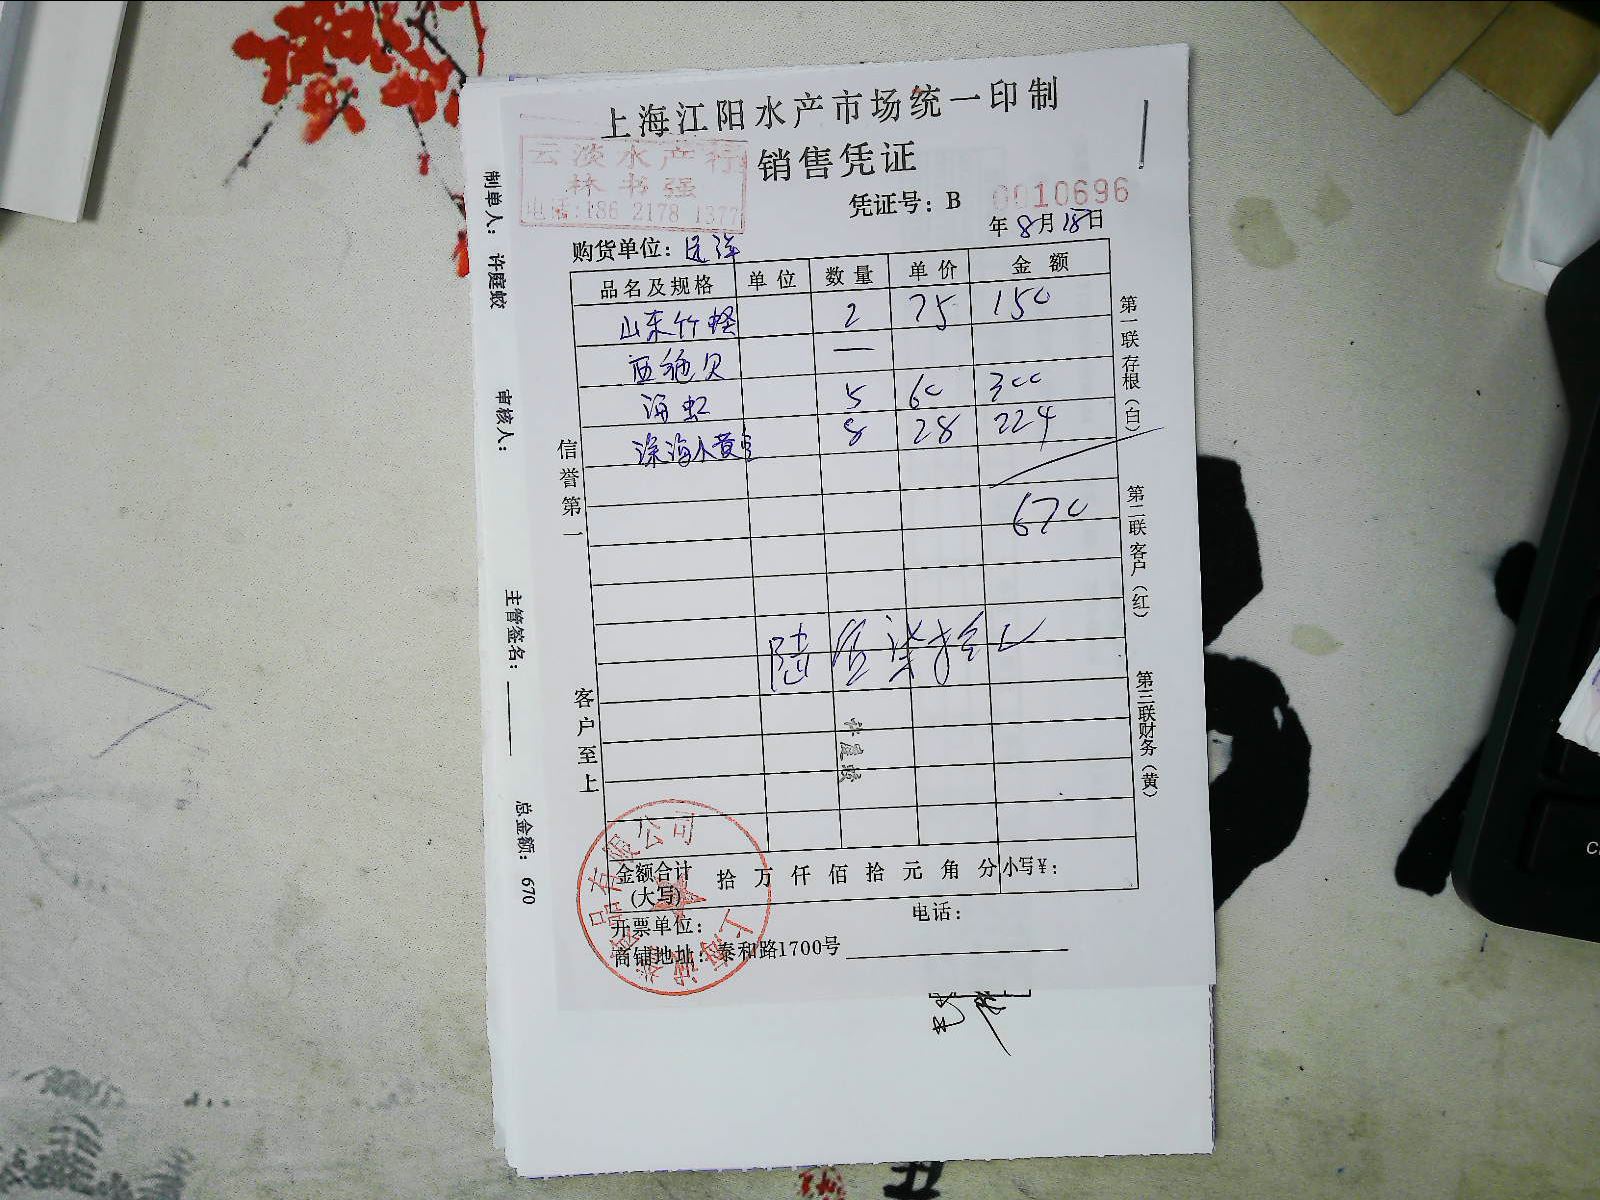 上海江阳水产市场统一印制
销售凭证
云淡水产行
林书强
电话:186 2178 1377
凭证号：B 0010696
年8月18日
购货单位：远洋
品名及规格 单位 数量 单价 金额
山东竹蛏 2 75 150
西施贝 一
海虹 5 60 300
深海小黄鱼 8 28 224
670
陆佰柒拾
金额合计(大写) 拾 万 仟 佰 拾 元 角 分 小写￥：
开票单位： 电话：
商铺地址：泰和路1700号
信誉第一
客户至上
第一联存根（白）
第二联客户（红）
第三联财务（黄）
制单人： 许庭蛟
审核人：
主管签名：
总金额： 670
许庭蛟
有限公司
上海